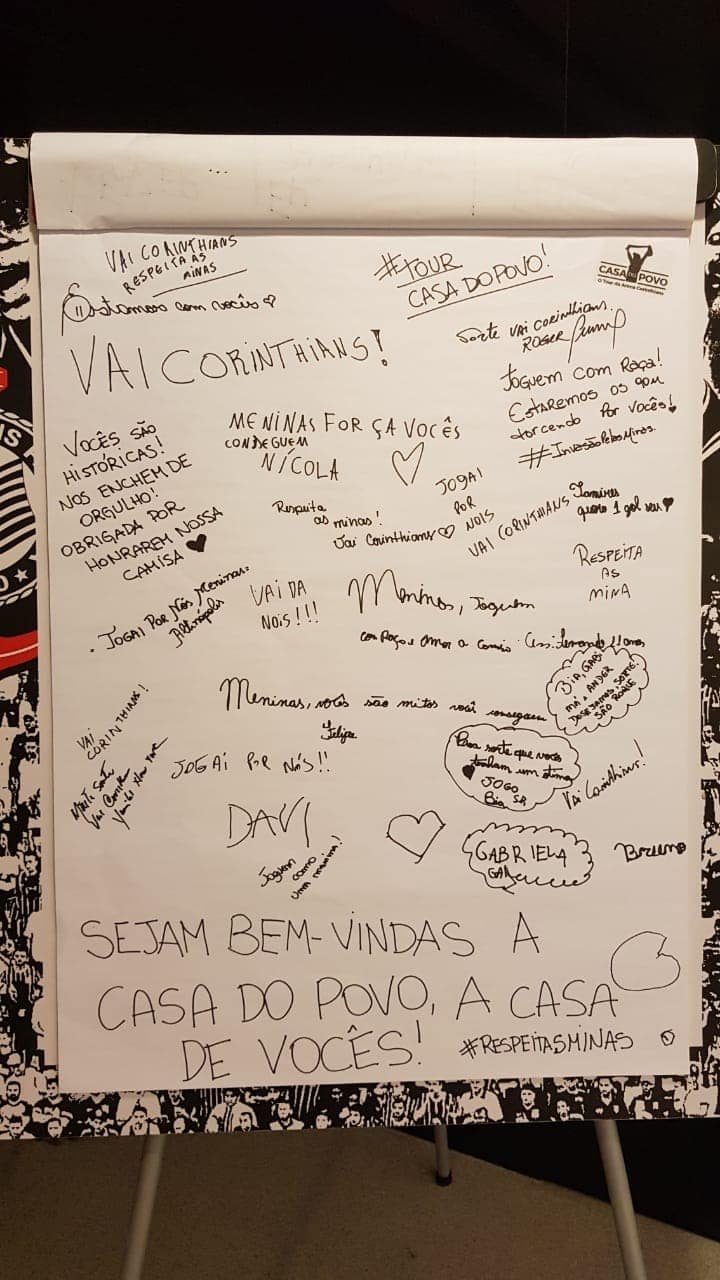 VAI CORINTHIANS
RESPEITA AS
MINAS
Estamos com vocês
#TOUR
CASA DO POVO!
CASA DO POVO
O Tour da Arena Corinthians
VAI CORINTHIANS!
Sorte VAI CORINTHIANS.
ROGER
JOGUEM COM RAÇA!
ESTAREMOS OS QPM
torcendo POR VOCÊS!
#InvasãoPelasMinas.
VOCÊS SÃO
HISTÓRICAS!
NOS ENCHEM DE
ORGULHO!
OBRIGADA POR
HONRAREM NOSSA
CAMISA
MENINAS FORÇA VOCÊS
CONDEGUEM
NÍCOLA
Respeita
as minas!
Vai Corinthians
JOGAI
POR
NOIS
VAI CORINTHIANS
Tamires
quero 1 gol seu
RESPEITA
AS
MINA
. JOGAI POR NÓS MENINAS.
VAI DA
NOIS!!!
Meninas, Joguem
com Raça e amor a camisa
11 anos
BIA, GABI
MÁ e ANDER
DESEJAMOS SORTE!
SÃO ROQUE
Meninas, vocês são mitos você conseguem
Felipe
VAI
CORINTHIANS!
Vai Corinthians
JOGAI POR NÓS!!
Boa sorte que vocês
tenham um ótimo
JOGO
Bia SP
Vai Corinthians!
DAVI
Joguem
como
uma menina!
GABRIELA
Bruno
SEJAM BEM-VINDAS A
CASA DO POVO, A CASA
DE VOCÊS!
#RESPEITASMINAS